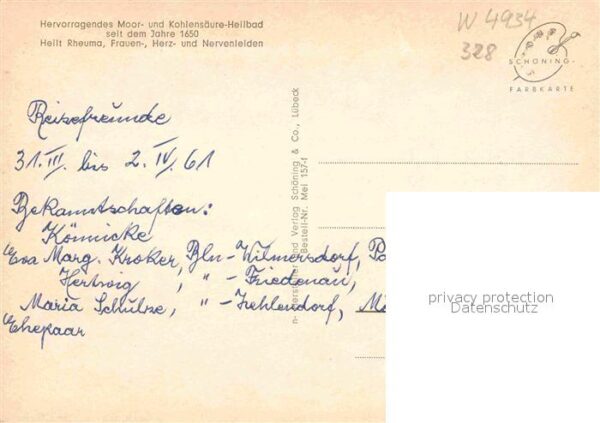 Hervorragendes Moor- und Kohlensäure-Heilbad
seit dem Jahre 1650
Heilt Rheuma, Frauen-, Herz- und Nervenleiden
W 4934
328
SCHÖNING-
FARBKARTE
Reisefreunde
31. III. bis 2. IV. 61
Bekanntschaften:
Könnicke
Eva Marg. Kroker, Bln-Wilmersdorf,
Hertwig, " - Friedenau,
Maria Schulze, " - Zehlendorf,
Ehepaar
und Verlag Schöning & Co., Lübeck
Bestell-Nr. Mei 157-f
privacy protection
Datenschutz